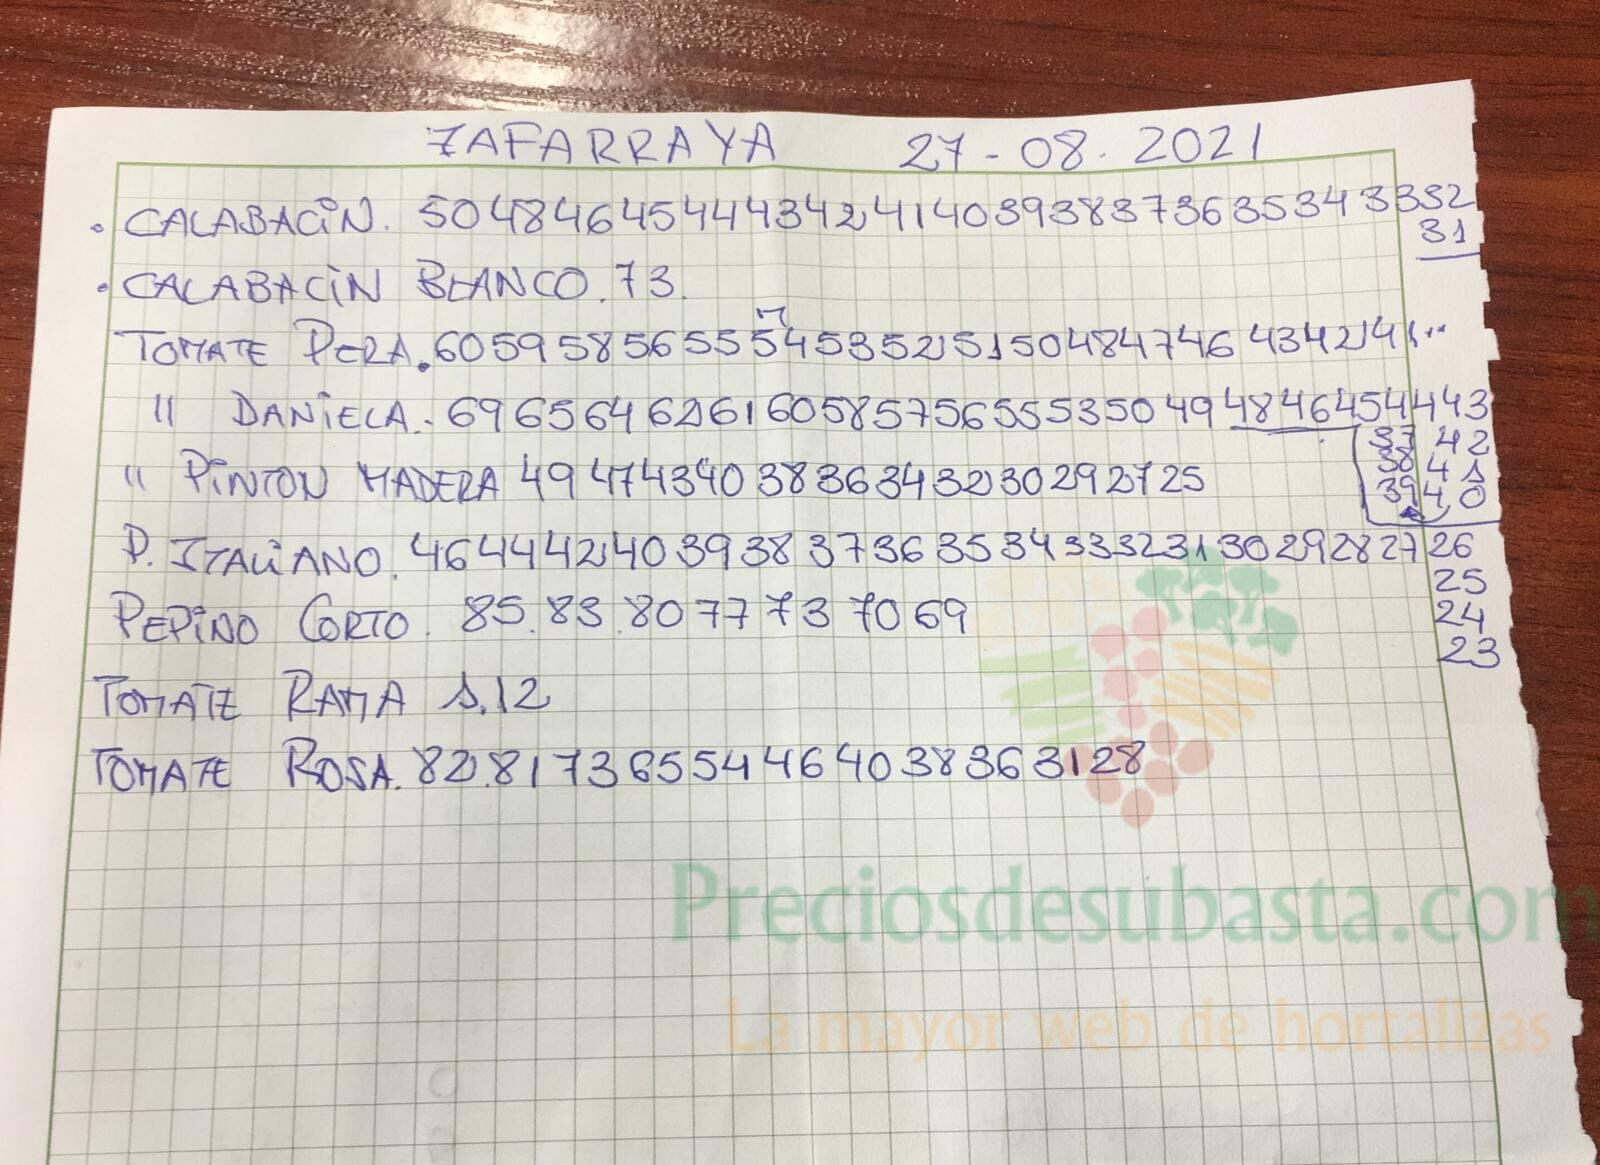 ZAFARRAYA 27-08.2021
. CALABACIN. 50 48 46 45 44 43 42 41 40 39 38 37 36 35 34 33 32
31
. CALABACIN BLANCO. 73.
TOMATE PERA. 60 59 58 56 55 54 53 52 51 50 48 47 46 43 42 41...
" DANIELA. 69 65 64 62 61 60 58 57 56 55 53 50 49 48 46 45 44 43
37 42
38 41
39 40
" PINTON MADERA 49 47 43 40 38 36 34 32 30 29 27 25
P. ITALIANO. 46 44 42 40 39 38 37 36 35 34 33 32 31 30 29 28 27 26
25
24
23
PEPINO CORTO. 85. 83. 80 77 73 70 69
TOMATE RAMA 1.12
TOMATE ROSA. 82. 81 73 65 54 46 40 38 36 31 28
Preciosdesubasta.com
La mayor web de hortalizas